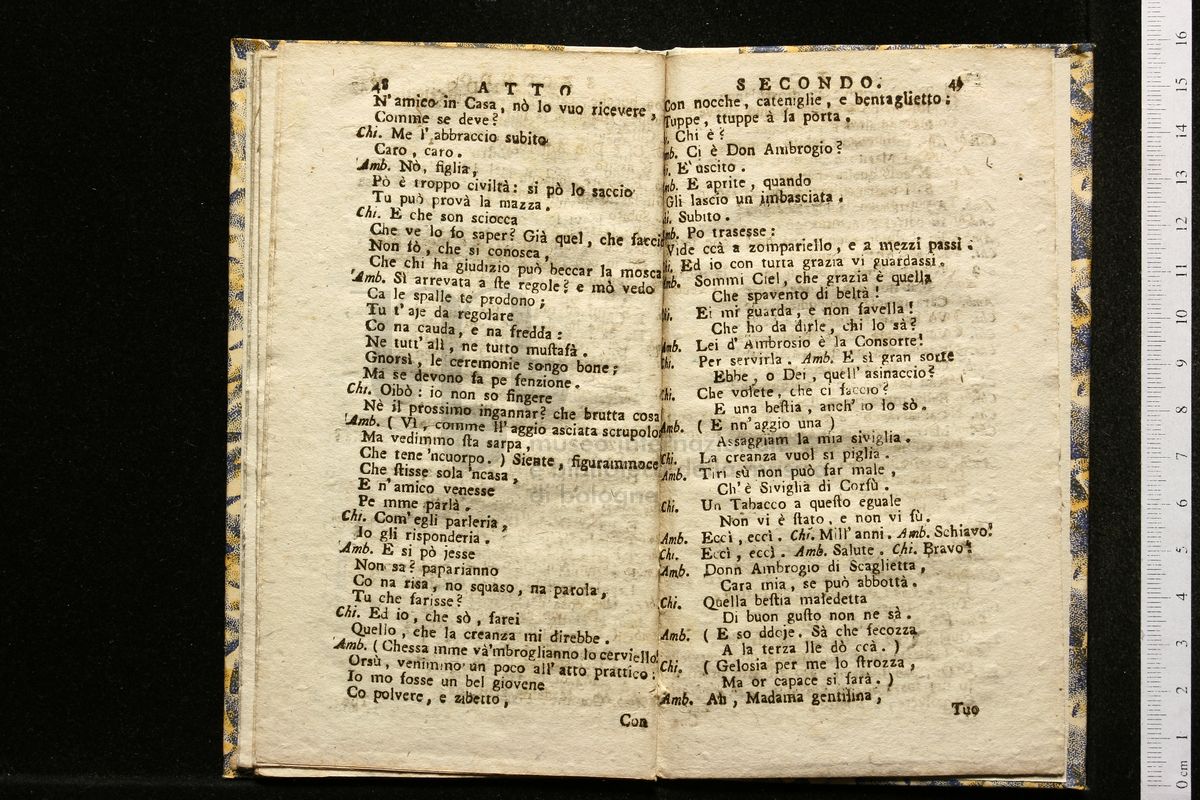 48 ATTO
N'amico in Casa, nò lo vuo ricevere,
Comme se deve?
Chi. Me l'abbraccio subito
Caro, caro.
Amb. Nò, figlia,
Pò è troppo civiltà: si pò lo saccio
Tu può provà la mazza.
Chi. E che son sciocca
Che ve lo fo saper? Già quel, che faccio
Non fò, che si conosca,
Che chi ha giudizio può beccar la mosca
Amb. Sì arrevata a ste regole? e mò vedo
Ca le spalle te prodono;
Tu t'aje da regolare
Co na cauda, e na fredda:
Ne tutt'alì, ne tutto mustafà.
Gnorsì, le ceremonie songo bone;
Ma se devono fa pe fenzione.
Chi. Oibò: io non so fingere
Nè il prossimo ingannar? che brutta cosa
Amb. (Vì, comme ll'aggio asciata scrupolo
Ma vedimmo sta sarpa,
Che tene 'ncuorpo.) Siente, figurammoce
Che stisse sola 'ncasa,
E n'amico venesse
Pe mme parlà.
Chi. Com'egli parleria,
Io gli risponderia.
Amb. E si pò jesse
Non sa? paparianno
Co na risa, no squaso, na parola,
Tu che farisse?
Chi. Ed io, che sò, farei
Quello, che la creanza mi direbbe.
Amb. (Chessa mme và'mbroglianno lo cerviello!
Orsù, venimmo un poco all'atto prattico:
Io mo fosse un bel giovene
Co polvere, e zibetto,
Con
SECONDO. 49
Con nocche, cateniglie, e bentaglietto:
Tuppe, ttuppe à la porta.
Chi è?
Ci è Don Ambrogio?
E' uscito.
E aprite, quando
Gli lascio un imbasciata.
Subito.
Po trasesse:
Vide ccà a zompariello, e a mezzi passi.
Ed io con tutta grazia vi guardassi.
Amb. Sommi Ciel, che grazia è quella
Che spavento di beltà!
Ei mi guarda, e non favella!
Che ho da dirle, chi lo sà?
Amb. Lei d'Ambrosio è la Consorte!
Chi. Per servirla. Amb. E sì gran sorte
Ebbe, o Dei, quell'asinaccio?
Chi. Che volete, che ci faccio?
E una bestia, anch'io lo sò.
Amb. (E nn'aggio una)
Assaggiam la mia siviglia.
Chi. La creanza vuol si piglia.
Amb. Tiri sù non può far male,
Ch'è Siviglia di Corfù.
Chi. Un Tabacco a questo eguale
Non vi è stato, e non vi fù.
Amb. Eccì, eccì. Chi. Mill'anni. Amb. Schiavo!
Chi. Eccì, eccì. Amb. Salute. Chi. Bravo!
Amb. Donn Ambrogio di Scaglietta,
Cara mia, se può abbottà.
Chi. Quella bestia maledetta
Di buon gusto non ne sà.
Amb. (E so ddoje. Sà che fecozza
A la terza lle dò ccà.)
Chi. (Gelosia per me lo strozza,
Ma or capace si farà.)
Amb. Ah, Madama gentilina,
Tuo